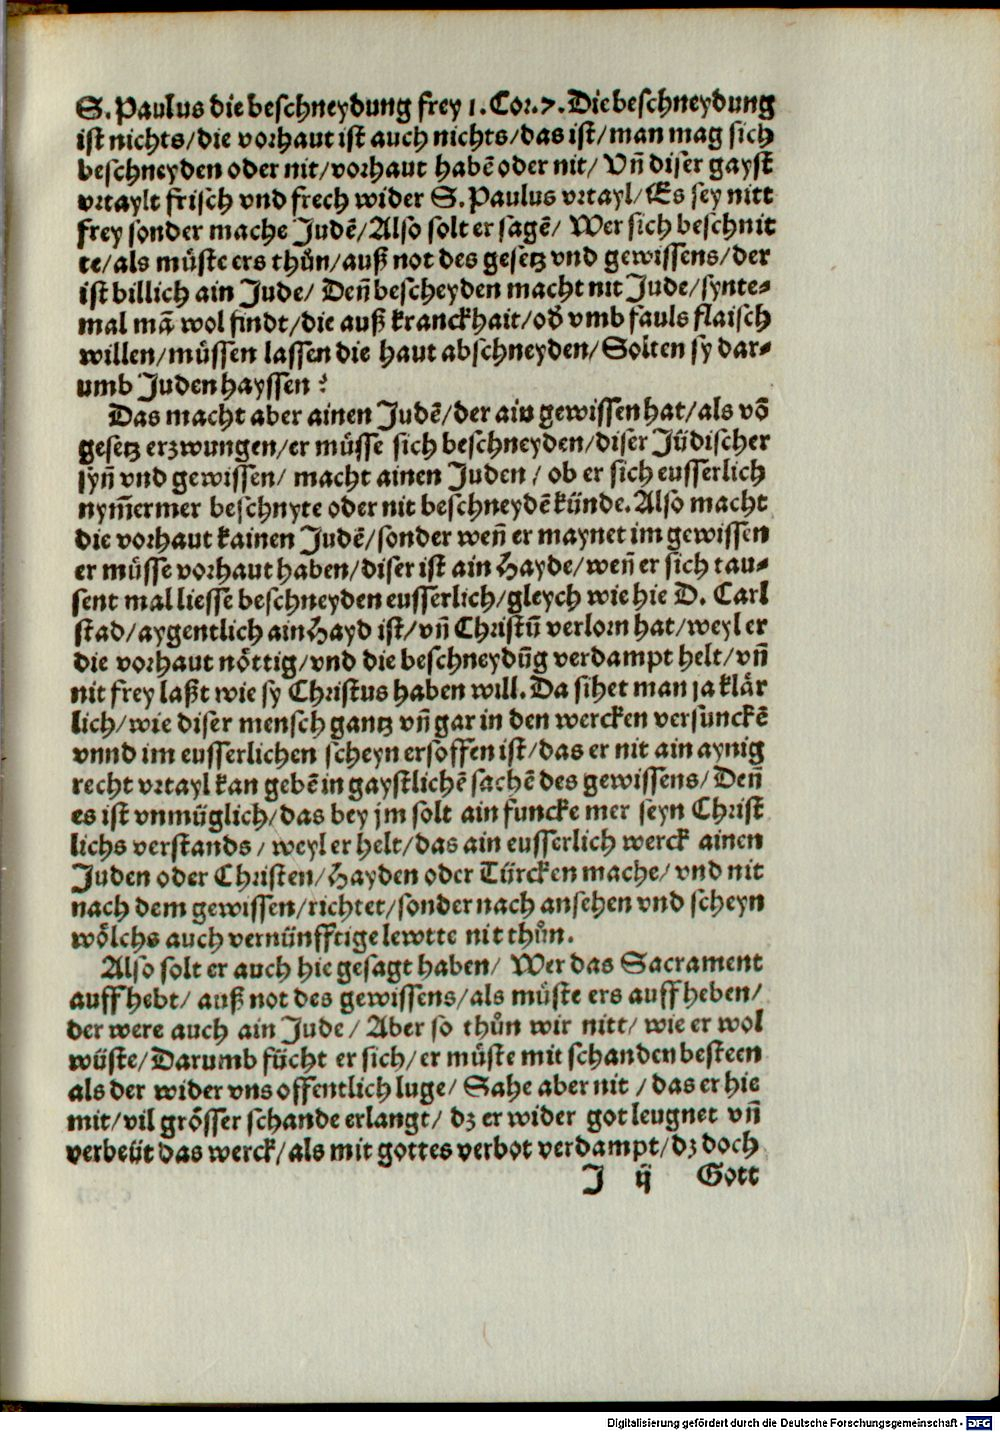 S. Paulus die beschneydung frey 1. Cor. 7. Die beschneydung
ist nichts/die vorhaut ist auch nichts/das ist/man mag sich
beschneyden oder nit/vorhaut habē oder nit/ Vn̄ diser gayst
vrtaylt frisch vnd frech wider S. Paulus vrtayl/Es sey nitt
frey sonder mache Judē/Also solt er sagē/ Wer sich beschnit
te/als müste ers thůn/auß not des gesetz vnd gewissens/der
ist billich ain Jude/ Den̄ bescheyden macht nit Jude/synte⸗
mal mā wol findt/die auß kranckhait/od̕ vmb fauls flaisch
willen/müssen lassen die haut abschneyden/Solten sy dar⸗
umb Juden hayssen?
Das macht aber ainen Judē/der ain gewissen hat/als vō
gesetz erzwungen/er müsse sich beschneyden/diser Jüdischer
syn̄ vnd gewissen/ macht ainen Juden/ ob er sich eusserlich
nym̄ermer beschnyte oder nit beschneydē künde. Also macht
die vorhaut kainen Judē/sonder wen̄ er maynet im gewissen
er müsse vorhaut haben/diser ist ain Hayde/wen̄ er sich tau⸗
sent mal liesse beschneyden eusserlich/gleych wie hie D. Carl
stad/aygentlich ain Hayd ist/vn̄ Christū verlorn hat/weyl er
die vorhaut nöttig/vnd die beschneydūg verdampt helt/vn̄
nit frey laßt wie sy Christus haben will. Da sihet man ja klär
lich/wie diser mensch gantz vn̄ gar in den wercken versunckē
vnnd im eusserlichen scheyn ersoffen ist/das er nit ain aynig
recht vrtayl kan gebē in gaystlichē sachē des gewissens/Den̄
es ist vnmüglich/das bey jm solt ain funcke mer seyn Christ
lichs verstands/ weyl er helt/das ain eusserlich werck ainen
Juden oder Christen/Hayden oder Türcken mache/vnd nit
nach dem gewissen/richtet/sonder nach ansehen vnd scheyn
wölchs auch vernünfftige lewtte nit thůn.
Also solt er auch hie gesagt haben/ Wer das Sacrament
auff hebt/ auß not des gewissens/als müste ers auff heben/
der were auch ain Jude/ Aber so thůn wir nitt/ wie er wol
wüste/Darumb fücht er sich/er müste mit schanden besteen
als der wider vns offentlich luge/ Sahe aber nit/das er hie
mit/vil grösser schande erlangt/ dz er wider got leugnet vn̄
verbeüt das werck/als mit gottes verbot verdampt/dz doch
J ij Gott
Digitalisierung gefördert durch die Deutsche Forschungsgemeinschaft - DFG